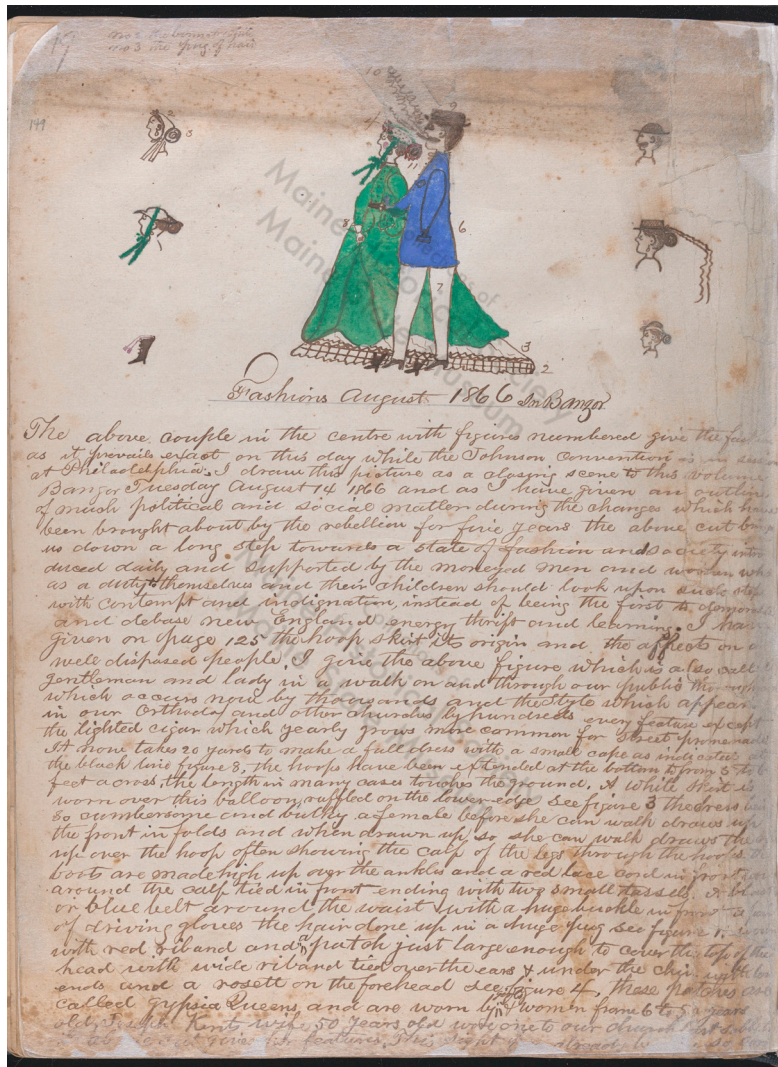 no 2 the bonnet
no 3 the pug of hair
149
2
3
10
9
11
8
6
7
3
2
Fashions August 1866 In Bangor
The above couple in the centre with figures numbered give the
as it prevails exact on this day while the Johnson Convention is in
at Philadelphia. I draw this picture as a closing scene to this volume
Bangor Tuesday August 14 1866 and as I have given an outline
of much political and social matter during the changes which have
been brought about by the rebellion for five years the above cut
us down a long step towards a state of fashion and society intro
duced daily and supported by the moneyed men and women who
as a duty to themselves and their children should look upon such
with contempt and indignation, instead of being the first to
and debase new England energy thrift and learning. I have
given on page 125 the hoop skirt its origin and the affects on
well disposed people, I give the above figure which is also call
gentleman and lady in a walk on and through our publis
which occurs now by thousands and the style which appear
in our Orthodox and other churches by hundreds every feature except
the lighted cigar which yearly grows more common for street promenade
It now takes 20 yards to make a full dress with a small cape as indicated
the black line figure 8, the hoops have been extended at the bottom to from 5 to
feet across, the length in many cases touches the ground, A white skirt is
worn over this balloon, ruffled on the lower edge see figure 3 the dress
so cumbersome and bulky a female before she can walk draws up
the front in folds and when drawn up so she can walk draws the
up over the hoop often showing the calf of the legs through the hoops
boots are made high up over the ankles and a red lace cord in front
around the calf tied in front ending with two small tassels. A
or blue belt around the waist with a huge buckle in front
of driving gloves the hair done up in a huge pug see figure 11
with red riband and a patch just large enough to cover the top of the
head with wide riband tied over the ears & under the chin with
ends and a rosett on the forehead see figure 4, these patches are
called gypsia Queens and are worn by women from 6 to 50 years
old, Kents wife 50 years old